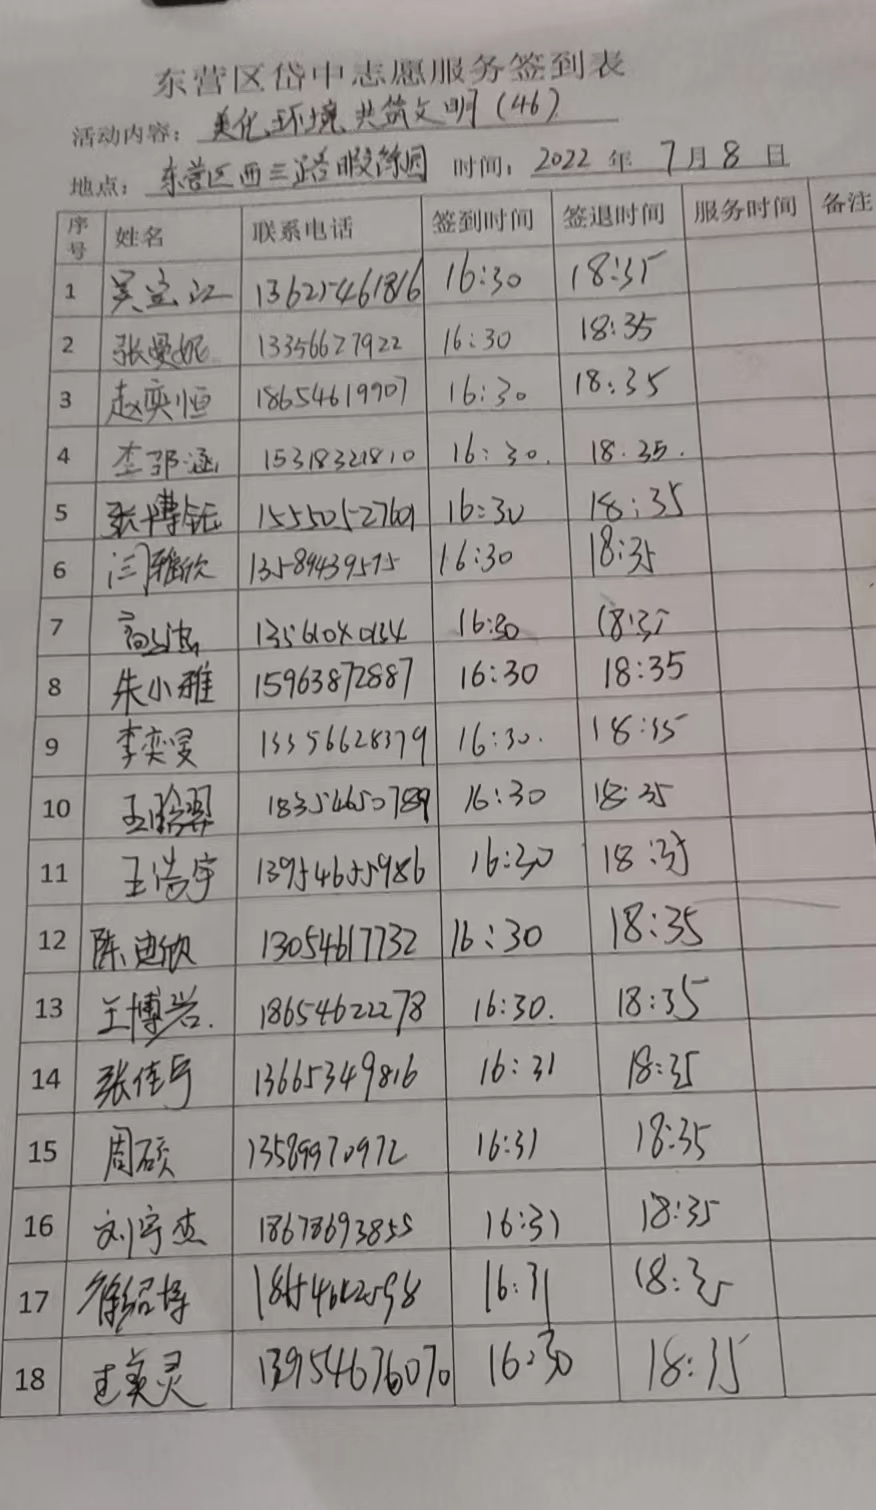 东营区岱中志愿服务签到表
活动内容：美化环境 共筑文明（46）
地点：东营区西三路 时间：2022 年 7月 8 日
序号 姓名 联系电话 签到时间 签退时间 服务时间 备注
1 吴立江 13625461816 16:30 18:35
2 张曼妮 13356627922 16:30 18:35
3 赵奕恒 18654619907 16:30 18:35
4 李邵涵 15318321810 16:30. 18:35.
5 张博钰 15550527601 16:30 18:35
6 闫雅欣 13589439575 16:30 18:35
7 16:30 18:35
8 朱小雅 15963872887 16:30 18:35
9 李奕旻 13356628379 16:30. 18:35
10 18354650789 16:30 18:35
11 王浩宇 13954655986 16:30 18:35
12 陈迪欣 13054617732 16:30 18:35
13 王博岩. 18654622278 16:30. 18:35
14 张佳宁 13665349816 16:31 18:35
15 周硕 13589970972 16:31 18:35
16 刘宇杰 18678693855 16:31 18:35
17 徐绍博 16:31 18:35
18 13954676070 16:30 18:35